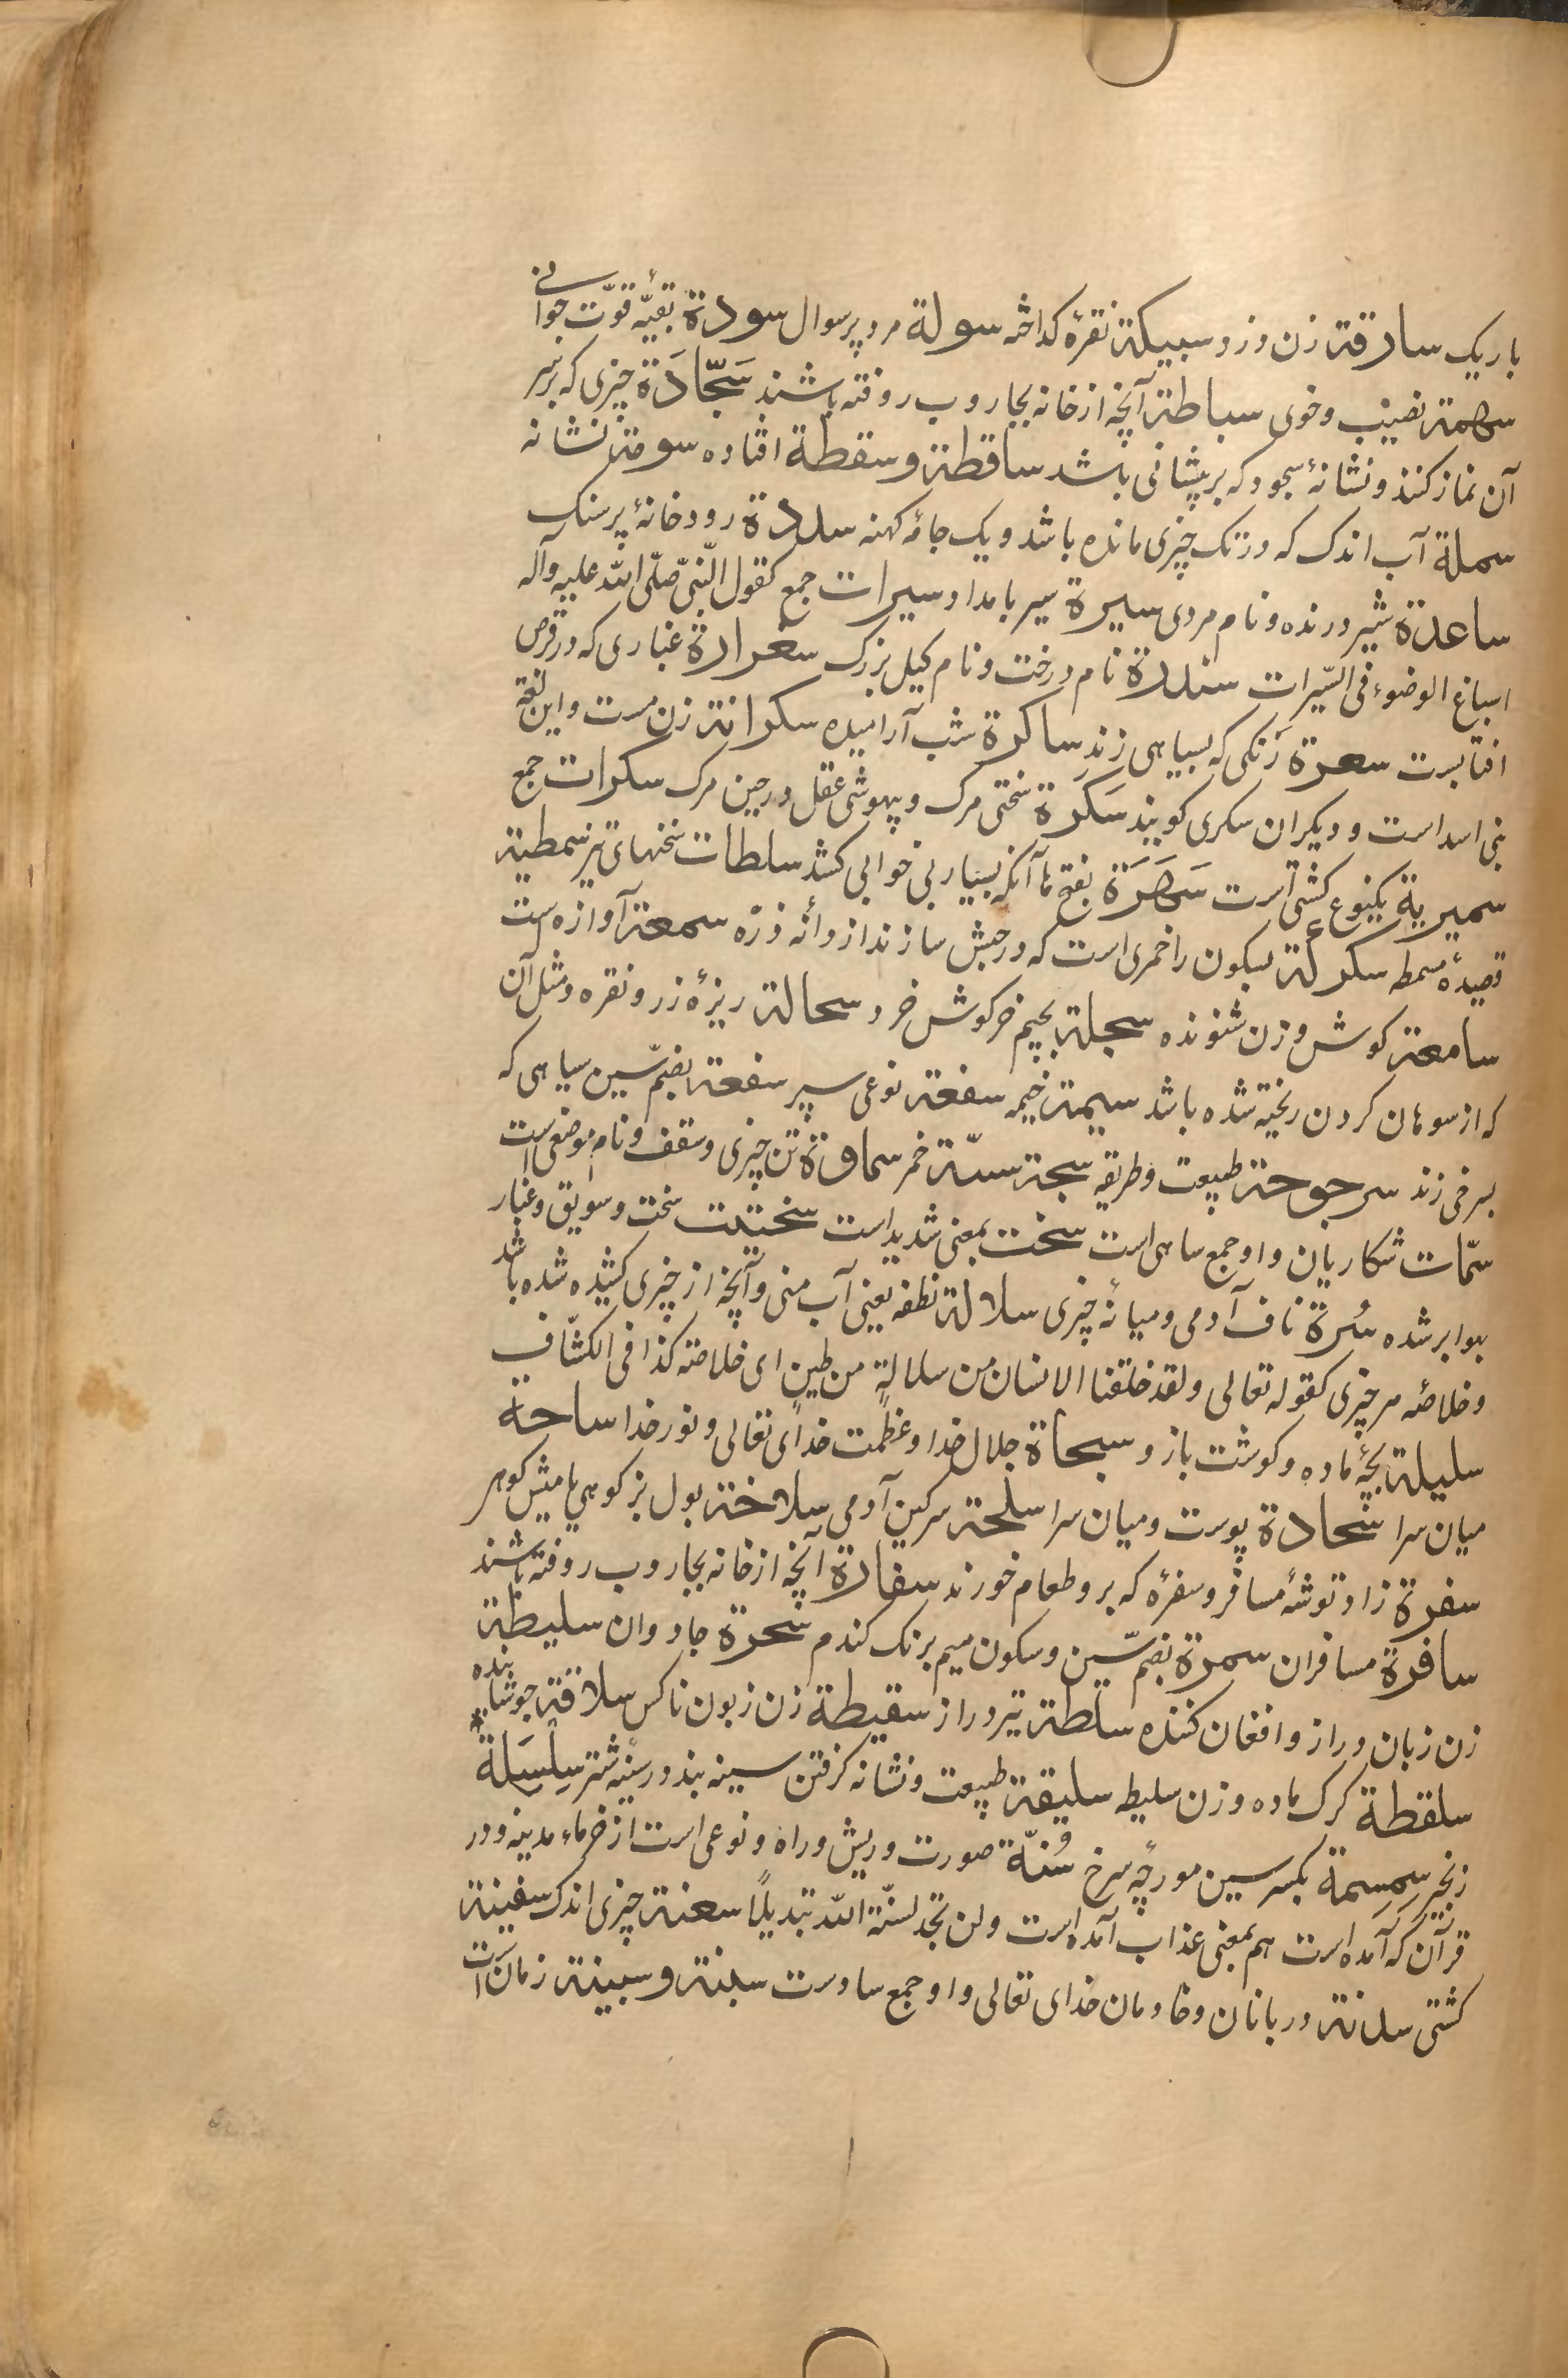 باریک سارقة زن دزد سبیکة نقرۀ کداخته سولة مرد پرسوال سودة بقیّۀ قوّت جوانی
سهمة نصیب و خوی سباطة آنچه از خانه بجاروب روفته باشند سَجّادَة چیزی که بر سر
آن نماز کنند و نشانۀ سجود که بر پیشانی باشد ساقطة و سقطة افتاده سومة نشانه
سملة آب اندک که در تک چیزی مانده باشد و یک جامۀ کهنه سددة رودخانۀ پر سنک
ساعدة شیر درنده و نام مردی سیرة سیر بامداد سیرات جمع کقول النّبیّ صلّی اللّه علیه وآله
اسباغ الوضوء فی السّیرات سندرة نام درخت و نام کیل بزرک سغرارة غباری که در قرص
افتابست سعرة رنکی که بسیاهی زند ساکرة شب آرامیده سکرانة زن مست و این لغة
بنی اسد است و دیکران سکری کویند سَکرَة سختی مرک و بیهوشی عقل در حین مرک سکرات جمع
سمیریة یکنوع کشتی است سَهَرَة بفتح ها آنکه بسیار بی خوابی کشد سلطات سخنهای تیز سمطیة
قصیدۀ مسمط سکرکة بسکون را خمری است که در حبش سازند از دانۀ ذرّه سمعة آوازه است
سامعة کوش و زن شنونده سجلة بجیم خرکوش خرد سحالة ریزۀ زر و نقره و مثل آن
که از سوهان کردن ریخته شده باشد سیمة خیمه سفعة نوعی سپر سفعة بضمّ سین سیاهی که
بسرخی زند سرجوحة طبیعت و طریقه سجة سبّة خمر سماوة تن چیزی و سقف و نام موضعی است
سمّات شکاریان و او جمع ساهی است سخت بمعنی شدید است سختیت سخت و سویق و غبار
بهوا بر شده سُرة ناف آدمی و میانۀ چیزی سلالة نطفه یعنی آب منی و آنچه از چیزی کشیده شده باشد
و خلاصۀ هر چیزی کقوله تعالی ولقد خلقنا الانسان من سلالةٍ من طینٍ ای خلاصته کذا فی الکشّاف
سلیلة بچۀ ماده و کوشت بازو سبحاة جلال خدا و عظمت خدای تعالی و نور خدا ساحة
میان سرا سحادة پوست و میان سرا سلحة سرکین آدمی سلاخة بول بز کوهی یا میش کوهی
سفرة زاد و توشۀ مسافر و سفرۀ که برو طعام خورند سفارة آنچه از خانه بجاروب روفته باشند
سافرة مسافران سمرة بضمّ سین و سکون میم برنک کندم سحرة جادوان سلیطة
زن زبان دراز و افغان کننده سلطة تیر دراز سقیطة زن زبون ناکس سلاقة جوشانیده
سلقطة کرک ماده و زن سلیطه سلیقة طبیعت و نشانه کرفتن سینه بند در سینۀ شتر سِلسَلة
زنجیر سِمسِمة بکسر سین مورچۀ سرخ سُنّة صورت و ریش و راه و نوعی است از خرماء مدینه و در
قرآن که آمده است هم بمعنی عذاب آمده است ولن تجد لسنّة اللّه تبدیلًا سعنة چیزی اندک سفینة
کشتی سدنة دربانان و خادمان خدای تعالی و او جمع سادست سبنة و سبینة زمان است